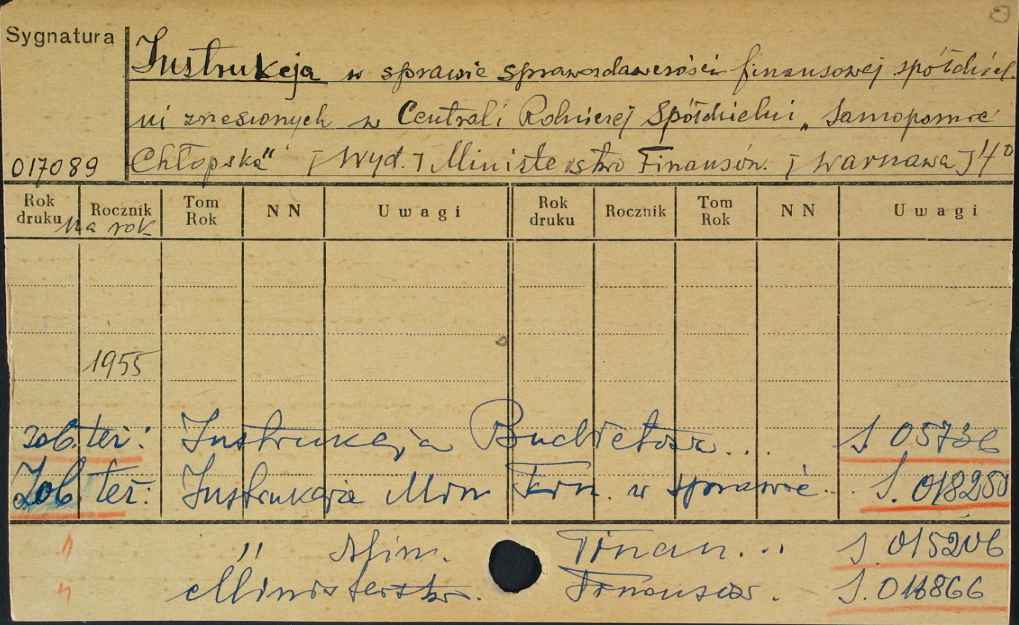 Sygnatura
Instrukcja w sprawie sprawozdawczości finansowej spółdziel-
ni zrzeszonych w Centrali Rolniczej Spółdzielni „Samopomoc
017089 Chłopska" [Wyd.] Ministerstwo Finansów. [Warszawa] 4°
Rok druku Rocznik Tom Rok NN Uwagi Rok druku Rocznik Tom Rok NN Uwagi
na rok
1955
zob. też: Instrukcja Budżetowa.... S 05736
Zob też: Instrukcja Min Fin. w sprawie... S. 018250
" " Min. Finan... S. 015206
" Ministerstw. Finansów. S. 011866